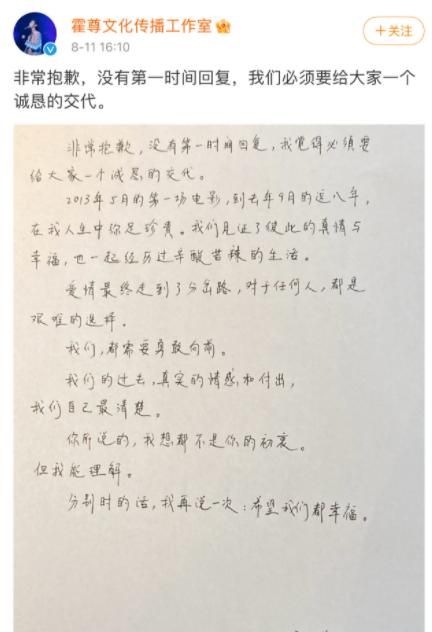 霍尊文化传播工作室
8-11 16:10
+关注
非常抱歉，没有第一时间回复，我们必须要给大家一个
诚恳的交代。
非常抱歉，没有第一时间回复，我觉得必须要
给大家一个诚恳的交代。
2013年5月的第一场电影，到去年9月的近八年，
在我人生中弥足珍贵。我们见证了彼此的真情与
幸福，也一起经历过辛酸苦辣的生活。
爱情最终走到了分岔路，对于任何人，都是
艰难的选择．
我们，都需要勇敢向前。
我们的过去，真实的情感和付出，
我们自己最清楚。
你所说的，我想都不是你的初衷。
但我能理解。
分别时的话，我再说一次：希望我们都幸福。